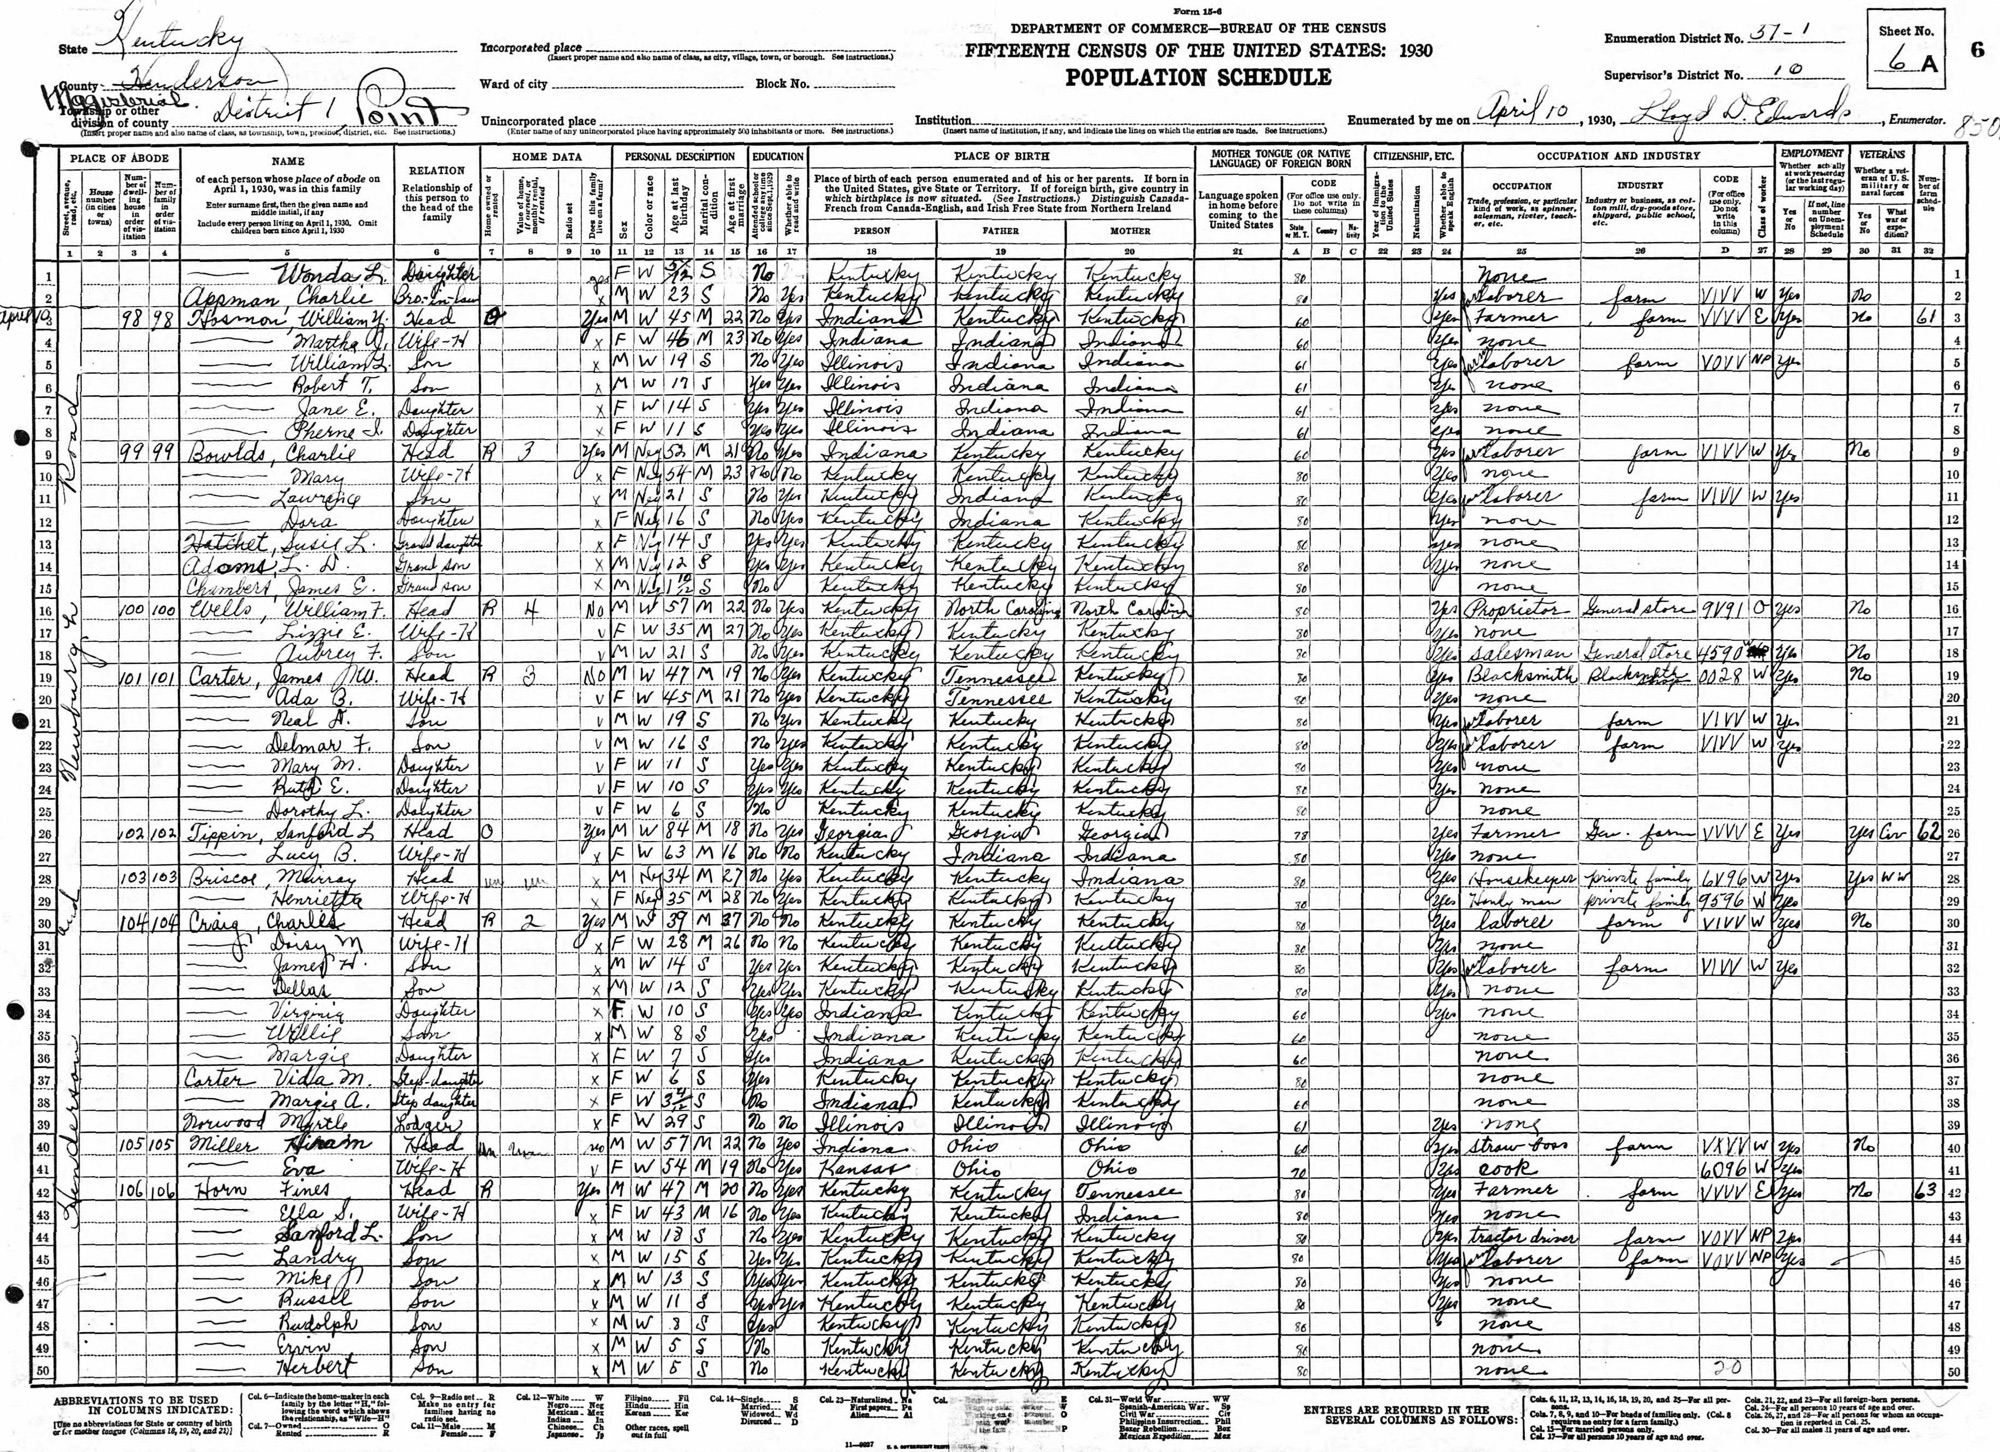 Form 15-6
DEPARTMENT OF COMMERCE—BUREAU OF THE CENSUS
FIFTEENTH CENSUS OF THE UNITED STATES: 1930
POPULATION SCHEDULE
State Kentucky
County Henderson
Magisterial
Township or other division of county District 1, Point
(Insert proper name and also name of class, as township, town, precinct, district, etc. See instructions.)
Incorporated place
(Insert proper name and also name of class, as city, village, town, or borough. See instructions.)
Ward of city Block No.
Unincorporated place
(Enter name of any unincorporated place having approximately 500 inhabitants or more. See instructions.)
Institution
(Insert name of institution, if any, and indicate the lines on which the entries are made. See instructions.)
Enumeration District No. 37-1
Supervisor's District No. 10
Sheet No. 6 A
6
Enumerated by me on April 10, 1930, Lloyd D. Edwards, Enumerator.
850
PLACE OF ABODE NAME RELATION HOME DATA PERSONAL DESCRIPTION EDUCATION PLACE OF BIRTH MOTHER TONGUE (OR NATIVE LANGUAGE) OF FOREIGN BORN CITIZENSHIP, ETC. OCCUPATION AND INDUSTRY EMPLOYMENT VETERANS
of each person whose place of abode on April 1, 1930, was in this family
Enter surname first, then the given name and middle initial, if any
Include every person living on April 1, 1930. Omit children born since April 1, 1930
Relationship of this person to the head of the family
Place of birth of each person enumerated and of his or her parents. If born in the United States, give State or Territory. If of foreign birth, give country in which birthplace is now situated. (See Instructions.) Distinguish Canada-French from Canada-English, and Irish Free State from Northern Ireland
PERSON FATHER MOTHER
Language spoken in home before coming to the United States
CODE OCCUPATION INDUSTRY CODE
1 2 3 4 5 6 7 8 9 10 11 12 13 14 15 16 17 18 19 20 21 A B C 22 23 24 25 26 D 27 28 29 30 31 32
Henderson and Newburgh Road
1 Wonda L. Daughter yes F W 5/12 S No Kentucky Kentucky Kentucky 80 none 1
2 Appman, Charlie Bro-in-law x M W 23 S No Yes Kentucky Kentucky Kentucky 80 Yes laborer farm VIVV W Yes No 2
April 10
3 98 98 Hosmon, William Y. Head O Yes M W 45 M 22 No Yes Indiana Kentucky Kentucky 60 Yes Farmer farm VVVV E Yes No 61 3
4 Martha J. Wife-H x F W 46 M 23 No Yes Indiana Indiana Indiana 60 Yes none 4
5 William L. Son x M W 19 S No Yes Illinois Indiana Indiana 61 Yes laborer farm VOVV NP Yes 5
6 Robert T. Son x M W 17 S Yes Yes Illinois Indiana Indiana 61 Yes none 6
7 Jane E. Daughter x F W 14 S Yes Yes Illinois Indiana Indiana 61 Yes none 7
8 Pherne I. Daughter x F W 11 S Yes Yes Illinois Indiana Indiana 61 Yes none 8
9 99 99 Bowlds, Charlie Head R 3 Yes M Neg 52 M 21 No Yes Indiana Kentucky Kentucky 60 Yes laborer farm VIVV W Yes No 9
10 Mary Wife-H x F Neg 54 M 23 No No Kentucky Kentucky Kentucky 80 Yes none 10
11 Lawrence Son x M Neg 21 S No Yes Kentucky Indiana Kentucky 80 Yes laborer farm VIVV W Yes 11
12 Dora Daughter x F Neg 16 S No Yes Kentucky Indiana Kentucky 80 Yes none 12
13 Hatchet, Susie L. Grand daughter x F Neg 14 S Yes Yes Kentucky Kentucky Kentucky 80 Yes none 13
14 Adams L. D. Grand son x M Neg 12 S Yes Yes Kentucky Kentucky Kentucky 80 Yes none 14
15 Chambers, James E. Grand son x M Neg 1 10/12 S No Kentucky Kentucky Kentucky 80 none 15
16 100 100 Wells, William F. Head R 4 No M W 57 M 22 No Yes Kentucky North Carolina North Carolina 80 Yes Proprietor General store 9V91 O Yes No 16
17 Lizzie E. Wife-H v F W 35 M 27 No Yes Kentucky Kentucky Kentucky 80 Yes none 17
18 Aubrey F. Son v M W 21 S No Yes Kentucky Kentucky Kentucky 80 Yes Salesman General store 4590 Yes No 18
19 101 101 Carter, James Mc. Head R 3 No M W 47 M 19 No Yes Kentucky Tennessee Kentucky 80 Yes Blacksmith Blacksmith shop 0028 W Yes No 19
20 Ada B. Wife-H v F W 45 M 21 No Yes Kentucky Tennessee Kentucky 80 Yes none 20
21 Neal A. Son v M W 19 S No Yes Kentucky Kentucky Kentucky 80 Yes laborer farm VIVV W Yes 21
22 Delmar F. Son v M W 16 S No Yes Kentucky Kentucky Kentucky 80 Yes laborer farm VIVV W Yes 22
23 Mary M. Daughter v F W 11 S Yes Yes Kentucky Kentucky Kentucky 80 Yes none 23
24 Ruth E. Daughter v F W 10 S Yes Yes Kentucky Kentucky Kentucky 80 Yes none 24
25 Dorothy L. Daughter v F W 6 S No Kentucky Kentucky Kentucky 80 none 25
26 102 102 Tippin, Sanford L Head O Yes M W 84 M 18 No Yes Georgia Georgia Georgia 78 Yes Farmer Gen. farm VVVV E Yes Yes Civ 62 26
27 Lucy B. Wife-H x F W 63 M 16 No No Kentucky Indiana Indiana 80 Yes none 27
28 103 103 Briscoe, Murray Head un un x M Neg 34 M 27 No Yes Kentucky Kentucky Indiana 80 Yes Housekeeper private family 6V96 W Yes Yes WW 28
29 Henrietta Wife-H x F Neg 35 M 28 No Yes Kentucky Kentucky Kentucky 80 Yes Handy man private family 9596 W Yes 29
30 104 104 Craig, Charles Head R 2 Yes M W 39 M 37 No No Kentucky Kentucky Kentucky 80 Yes laborer farm VIVV W Yes No 30
31 Daisy M Wife-H x F W 28 M 26 No No Kentucky Kentucky Kentucky 80 Yes none 31
32 James H. Son x M W 14 S Yes Yes Kentucky Kentucky Kentucky 80 Yes laborer farm VIVV W Yes 32
33 Dellas Son x M W 12 S Yes Yes Kentucky Kentucky Kentucky 80 Yes none 33
34 Virginia Daughter x F W 10 S Yes Yes Indiana Kentucky Kentucky 60 Yes none 34
35 Willie Son x M W 8 S Yes Indiana Kentucky Kentucky 60 none 35
36 Margie Daughter x F W 7 S Yes Indiana Kentucky Kentucky 60 none 36
37 Carter Vida M. Step-daughter x F W 6 S Yes Kentucky Kentucky Kentucky 80 none 37
38 Margie A. Step daughter x F W 3 4/12 S No Indiana Kentucky Kentucky 60 none 38
39 Norwood Myrtle Lodger x F W 29 S No No Illinois Illinois Illinois 61 Yes none 39
40 105 105 Miller Hiram Head no M W 57 M 22 No Yes Indiana Ohio Ohio 60 Yes straw boss farm VXVV W Yes No 40
41 Eva Wife-H v F W 54 M 19 No Yes Kansas Ohio Ohio 70 Yes cook 6096 W Yes 41
42 106 106 Horn Fines Head R Yes M W 47 M 20 No Yes Kentucky Kentucky Tennessee 80 Yes Farmer farm VVVV E Yes No 63 42
43 Ella S. Wife-H x F W 43 M 16 No Yes Kentucky Kentucky Indiana 80 Yes none 43
44 Sanford L. Son x M W 18 S No Yes Kentucky Kentucky Kentucky 80 Yes tractor driver farm VOVV NP Yes 44
45 Landry Son x M W 15 S Yes Yes Kentucky Kentucky Kentucky 80 Yes laborer farm VOVV NP Yes 45
46 Mike Son x M W 13 S Yes Yes Kentucky Kentucky Kentucky 80 Yes none 46
47 Russel Son x M W 11 S Yes Yes Kentucky Kentucky Kentucky 80 Yes none 47
48 Rudolph Son x M W 8 S Yes Kentucky Kentucky Kentucky 80 none 48
49 Ervin Son x M W 5 S No Kentucky Kentucky Kentucky 80 none 49
50 Herbert Son x M W 5 S No Kentucky Kentucky Kentucky 80 none 20 50
ABBREVIATIONS TO BE USED IN COLUMNS INDICATED:
[Use no abbreviations for State or country of birth or for mother tongue (Columns 18, 19, 20, and 21)]
Col. 6—Indicate the home-maker in each family by the letter "H," following the word which shows the relationship, as "Wife—H"
Col. 7—Owned O
Rented R
Col. 9—Radio set R
Make no entry for families having no radio set.
Col. 11—Male M
Female F
Col. 12—White W
Negro Neg
Mexican Mex
Indian In
Chinese Ch
Japanese Jp
Filipino Fil
Hindu Hin
Korean Kor
Other races, spell out in full
Col. 14—Single S
Married M
Widowed Wd
Divorced D
Col. 23—Naturalized Na
First papers Pa
Alien Al
Col. 31—World War WW
Spanish-American War Sp
Civil War Civ
Philippine Insurrection Phil
Boxer Rebellion Box
Mexican Expedition Mex
ENTRIES ARE REQUIRED IN THE SEVERAL COLUMNS AS FOLLOWS:
Cols. 6, 11, 12, 13, 14, 16, 18, 19, 20, and 25—For all persons.
Cols. 7, 8, 9, and 10—For heads of families only. (Col. 8 requires no entry for a farm family.)
Col. 15—For married persons only.
Col. 17—For all persons 10 years of age and over.
Cols. 21, 22, and 23—For all foreign-born persons.
Col. 24—For all persons 10 years of age and over.
Cols. 26, 27, and 28—For all persons for whom an occupation is reported in Col. 25.
Col. 30—For all males 21 years of age and over.
11—9027